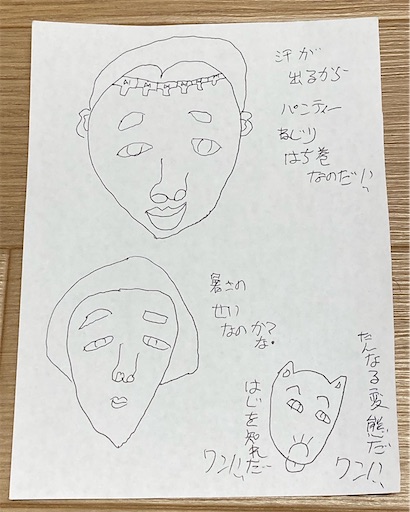 汗が
出るから
パンティー
ねじり
はち巻
なのだ!!
暑さの
せい
なのか?
な。
たんなる変態だ
ワン!!
はじを知れだ
ワン!!